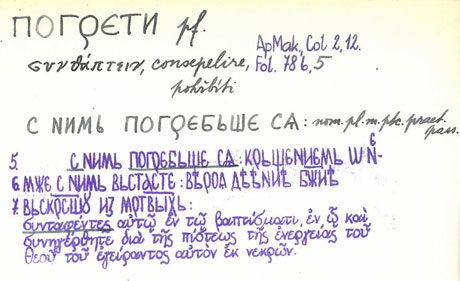 ПОГРЕТИ pf.
ApMak, Col 2,12.
Fol. 78 b, 5
συνθάπτειν, consepelire,
pohřbíti
С НИМЬ ПОГРЕБЬШЕ СѦ : nom. pl. m. ptc. praet.
pass.
5. С НИМЬ ПОГРЕБЬШЕ СѦ : КРЬЩЕНИЕМЬ Ѡ Н-
6. МЖЕ С НИМЬ ВЬСТАСТЕ : ВѢРОѪ ДѢѢНИѢ БЖИѢ
7. ВЬСКРСШѠ ИЗ МРТВЫХЬ :
συνταφέντες αὐτῷ ἐν τῷ βαπτίσματι, ἐν ᾧ καὶ
συνηγέρθητε διὰ τῆς πίστεως τῆς ἐνεργείας τοῦ
θεοῦ τοῦ ἐγείραντος αὐτὸν ἐκ νεκρῶν.